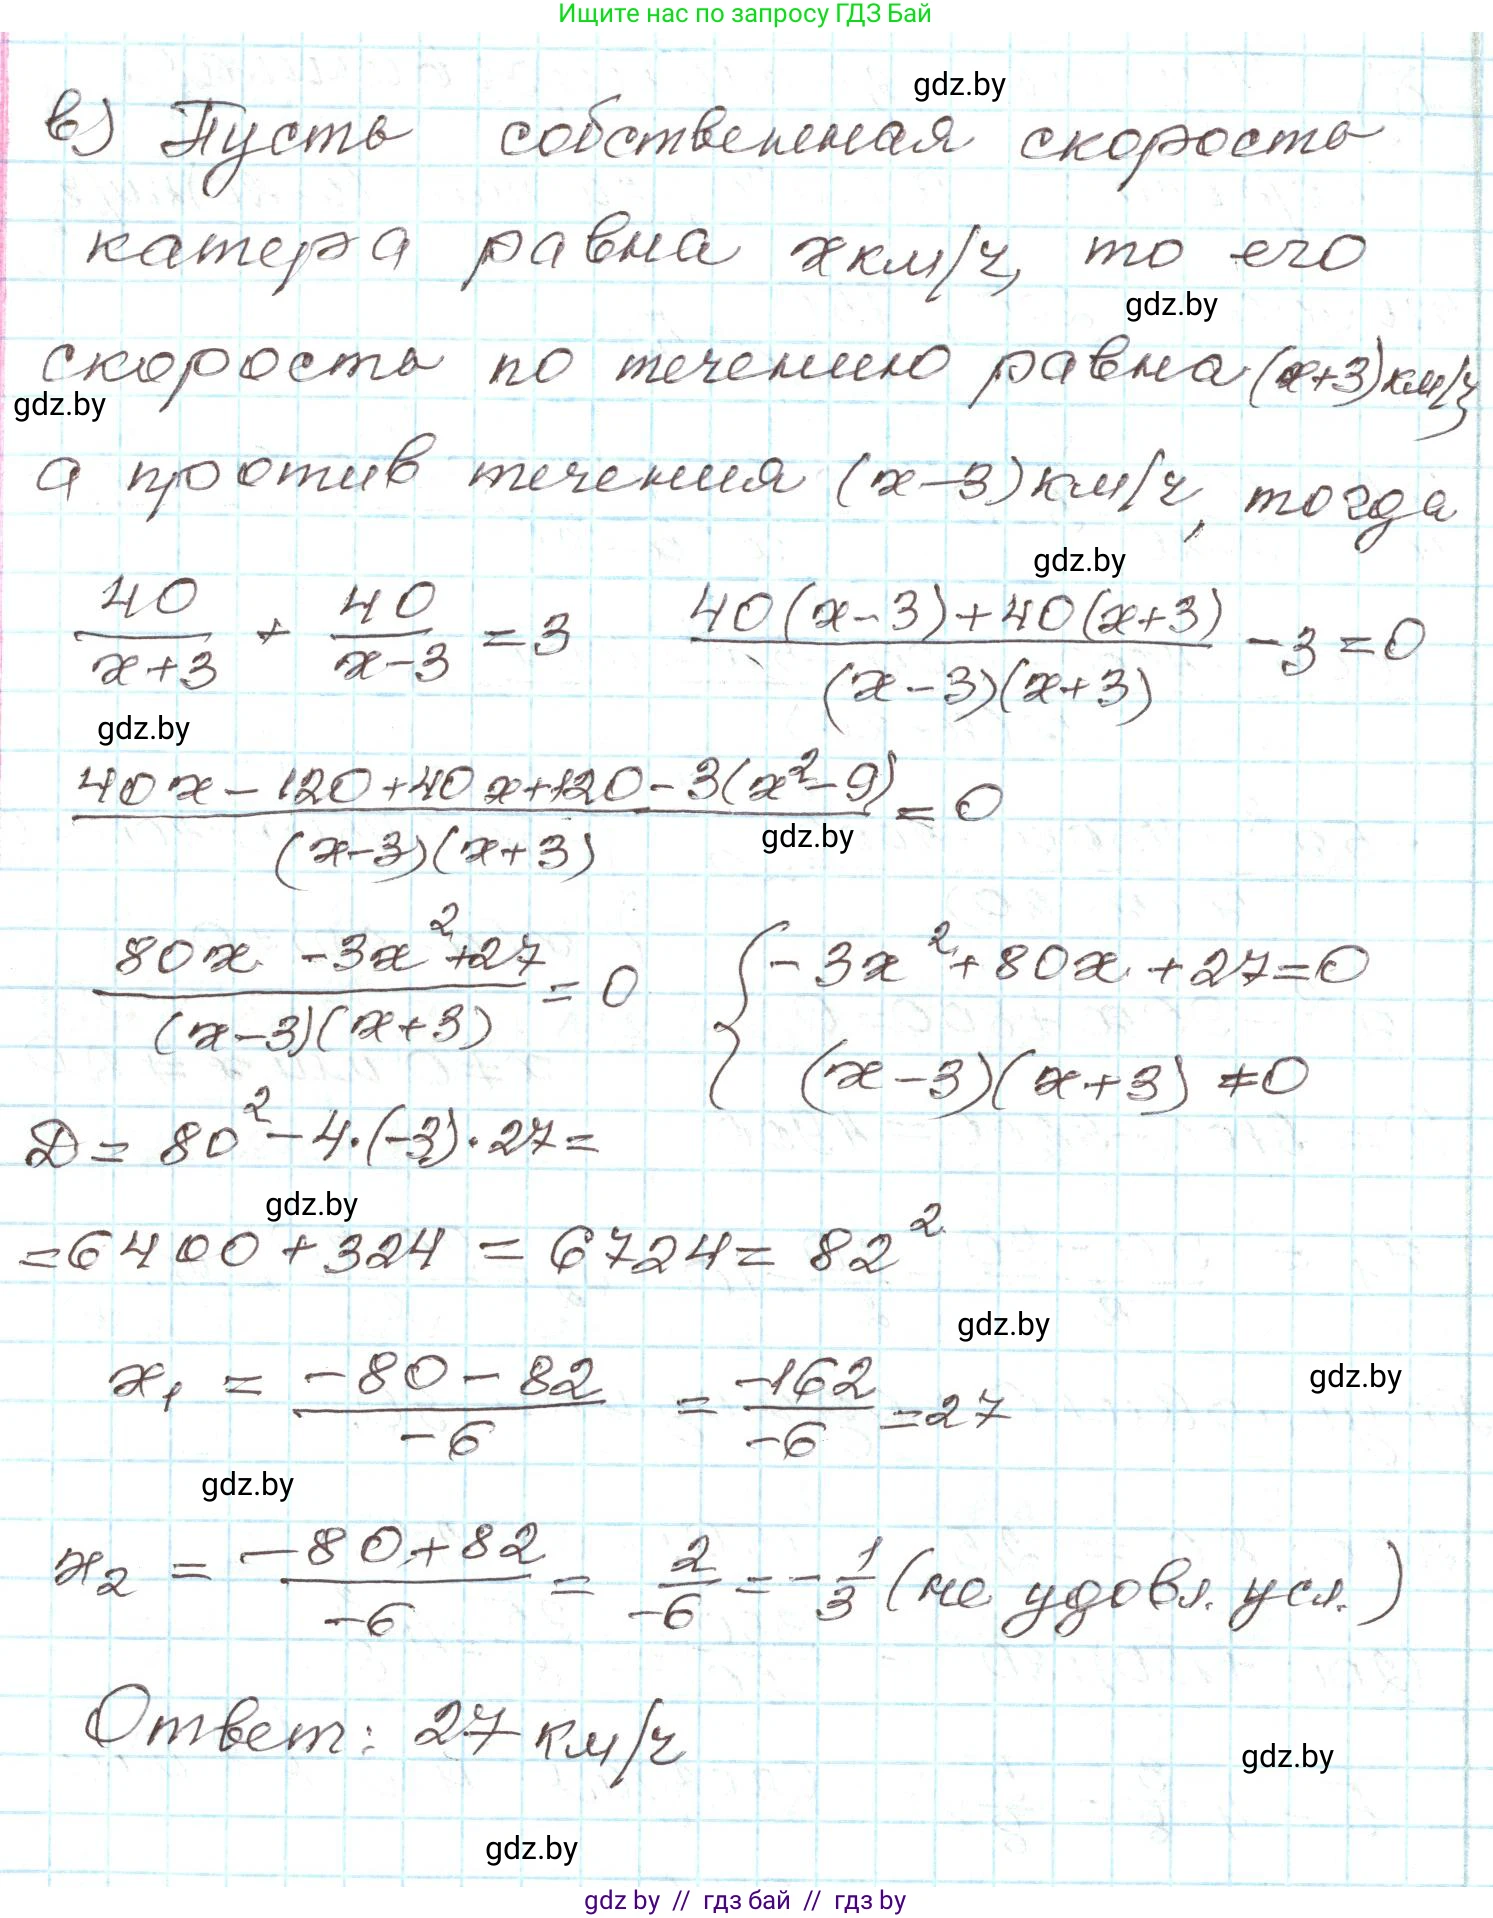 Ищите нас по запросу ГДЗ Бай
gdz.by
в) Пусть собственная скорость
катера равна x км/ч, то его
gdz.by
скорость по течению равна (x+3) км/ч,
gdz.by
а против течения (x-3) км/ч, тогда
gdz.by
40/(x+3) + 40/(x-3) = 3   (40(x-3)+40(x+3))/((x-3)(x+3)) - 3 = 0
gdz.by
(40x-120+40x+120-3(x²-9))/((x-3)(x+3)) = 0
gdz.by
(80x-3x²+27)/((x-3)(x+3)) = 0   { -3x²+80x+27=0
(x-3)(x+3) ≠ 0
Д = 80² - 4·(-3)·27 =
gdz.by
= 6400 + 324 = 6724 = 82²
gdz.by
x₁ = (-80-82)/(-6) = (-162)/(-6) = 27
gdz.by
gdz.by
x₂ = (-80+82)/(-6) = 2/(-6) = -1/3 (не удовл. усл.)
Ответ: 27 км/ч
gdz.by
gdz.by
gdz.by // гдз бай // гдз by